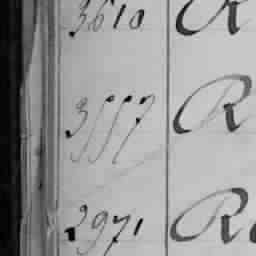 3610 R
3557 R
2971 Re